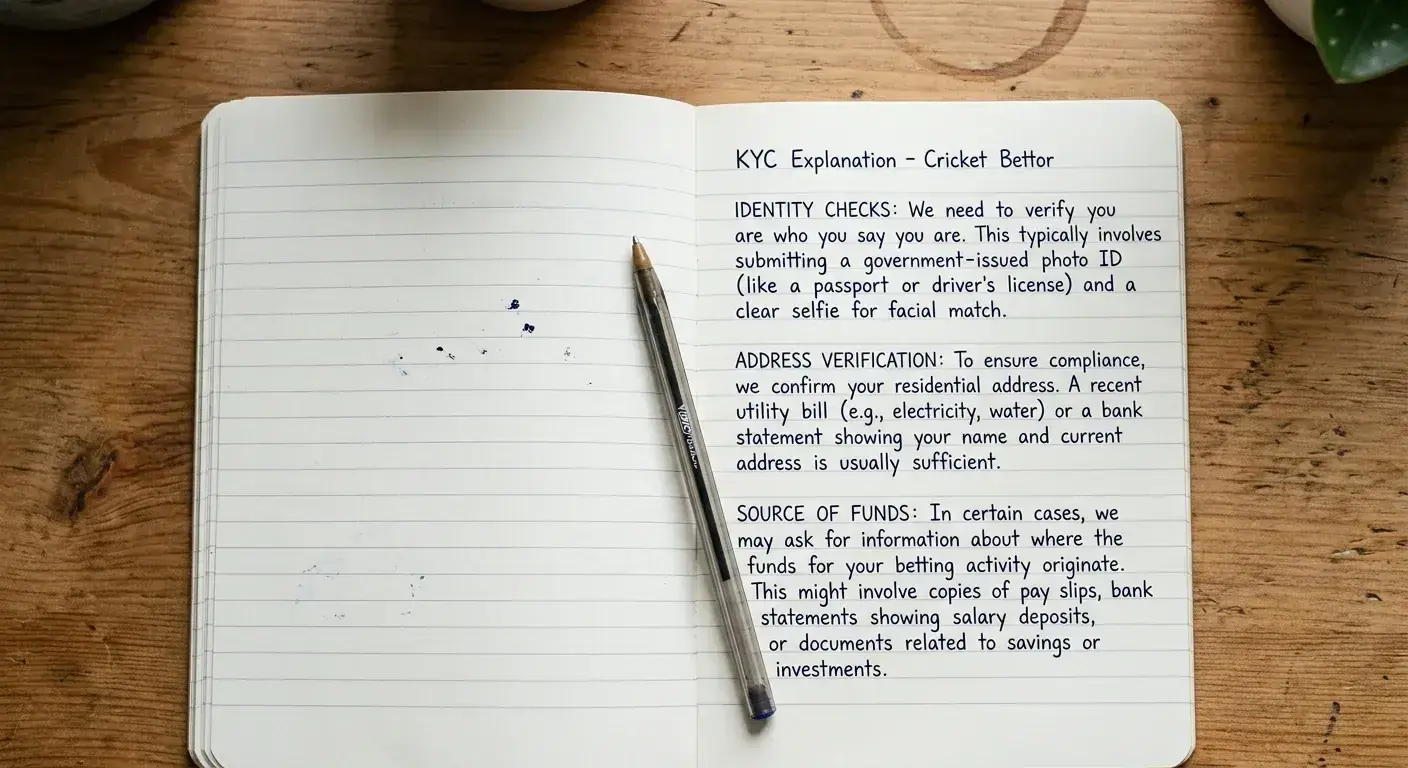 KYC Explanation - Cricket Bettor
IDENTITY CHECKS: We need to verify you
are who you say you are. This typically involves
submitting a government-issued photo ID
(like a passport or driver's license) and a
clear selfie for facial match.
ADDRESS VERIFICATION: To ensure compliance,
we confirm your residential address. A recent
utility bill (e.g., electricity, water) or a bank
statement showing your name and current
address is usually sufficient.
SOURCE OF FUNDS: In certain cases, we
may ask for information about where the
funds for your betting activity originate.
This might involve copies of pay slips, bank
statements showing salary deposits,
or documents related to savings or
investments.